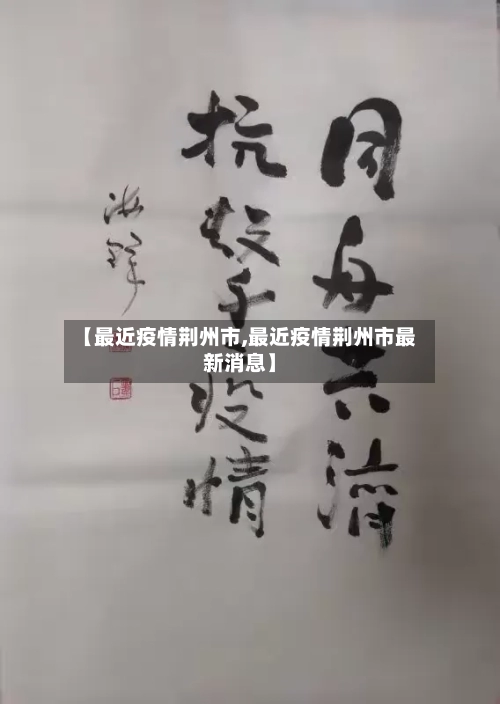 同舟共济
抗擊疫情
【最近疫情荆州市,最近疫情荆州市最
新消息】